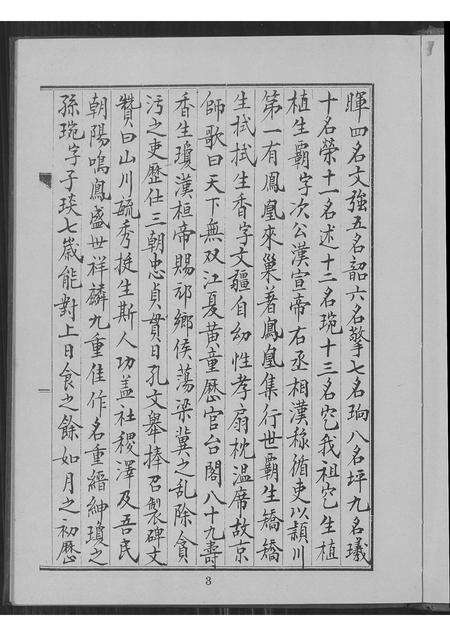 暉四名文強五名韶六名擎七名珦八名坪九名㼁
十名榮十一名述十二名琬十三名它我祖它生植
植生霸字次公漢宣帝右丞相漢称循吏以頴川
第一有鳳凰來巢著鳳凰集行世霸生矯矯
生拭拭生香字文疆自幼性孝扇枕溫席故京
師歌曰天下無双江夏黃童歷官台閣八十九壽
香生瓊漢桓帝賜邟鄉侯蕩梁冀之乱除貪
污之吏歷仕三朝忠貞貫日孔文舉捧召製碑文
贊曰山川毓秀挺生斯人功盖社稷澤及吾民
朝陽鳴鳳盛世祥麟九重佳作名重縉紳瓊之
孫琬字子琰七歲能對上日食之餘如月之初歷
3